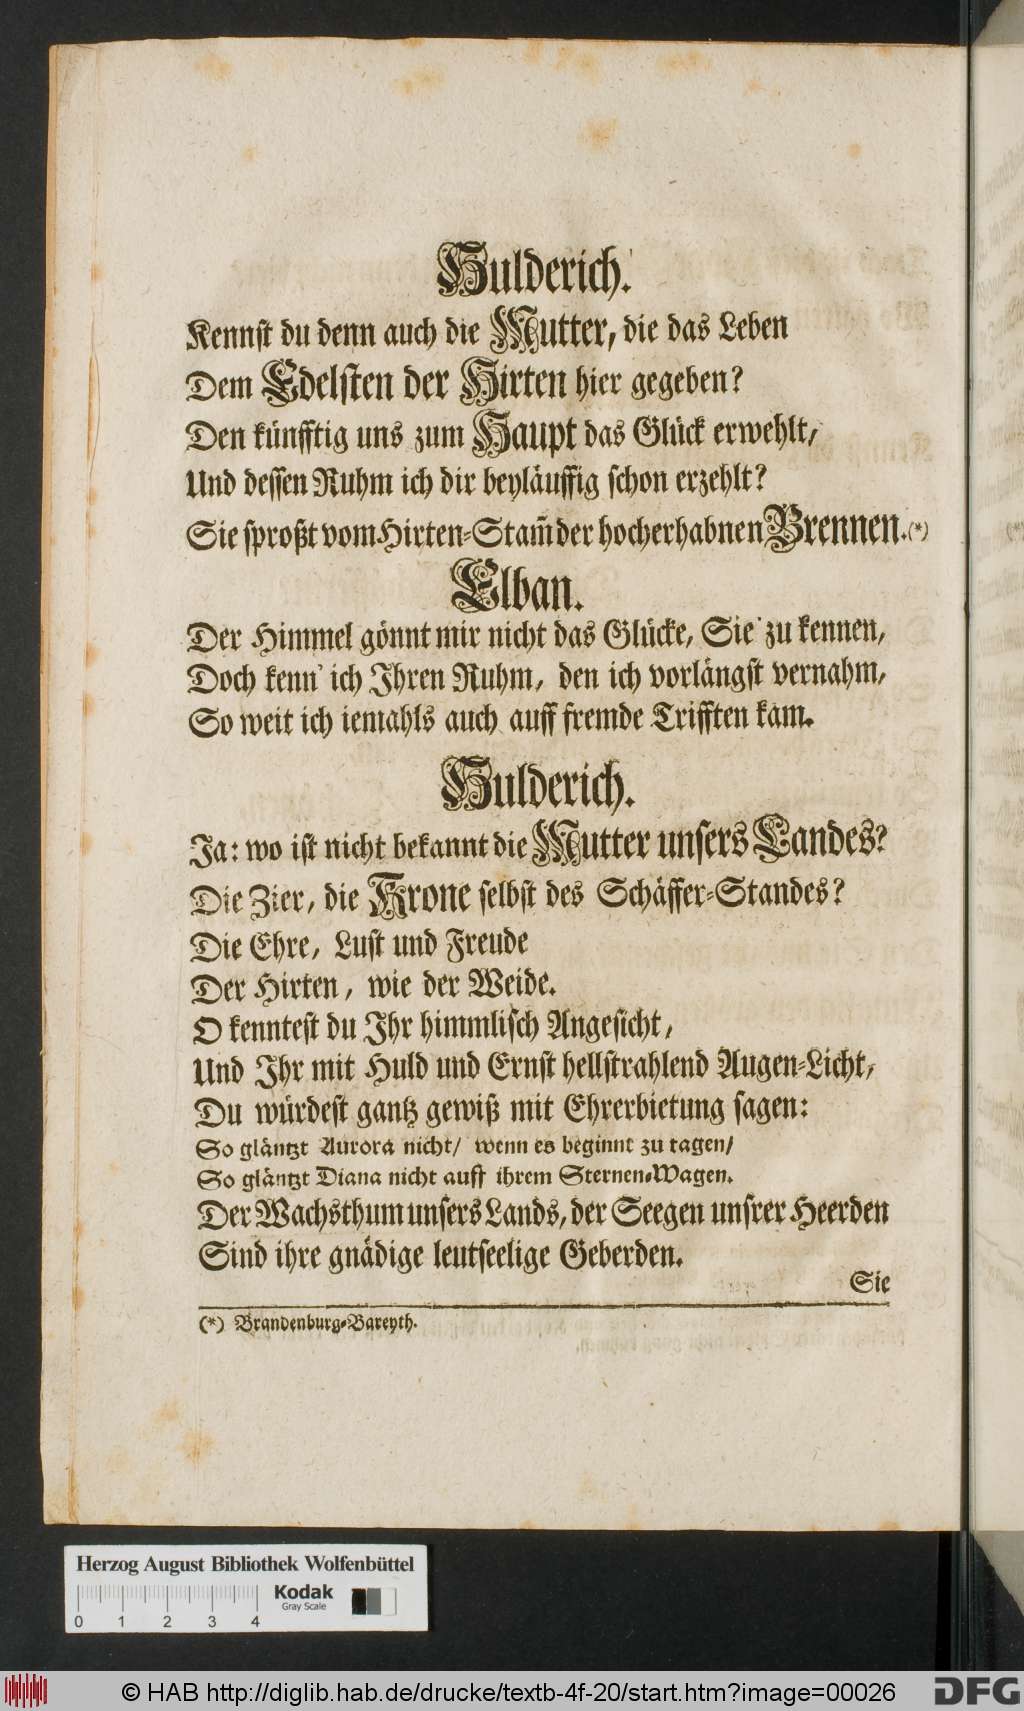 Hulderich.
Kennst du denn auch die Mutter, die das Leben
Dem Edelsten der Hirten hier gegeben?
Den künfftig uns zum Haupt das Glück erwehlt,
Und dessen Ruhm ich dir beyläuffig schon erzehlt?
Sie sproßt vom Hirten-Stam̃ der hocherhabnen Brennen.(*)
Elban.
Der Himmel gönnt mir nicht das Glücke, Sie zu kennen,
Doch kenn' ich Ihren Ruhm, den ich vorlängst vernahm,
So weit ich iemahls auch auff fremde Trifften kam.
Hulderich.
Ja: wo ist nicht bekannt die Mutter unsers Landes?
Die Zier, die Krone selbst des Schäffer-Standes?
Die Ehre, Lust und Freude
Der Hirten, wie der Weide.
O kenntest du Ihr himmlisch Angesicht,
Und Ihr mit Huld und Ernst hellstrahlend Augen-Licht,
Du würdest gantz gewiß mit Ehrerbietung sagen:
So gläntzt Aurora nicht/ wenn es beginnt zu tagen/
So gläntzt Diana nicht auff ihrem Sternen-Wagen.
Der Wachsthum unsers Lands, der Seegen unsrer Heerden
Sind ihre gnädige leutseelige Geberden.
Sie
(*) Brandenburg-Bareyth.
Herzog August Bibliothek Wolfenbüttel
Kodak
Gray Scale
0 1 2 3 4
© HAB http://diglib.hab.de/drucke/textb-4f-20/start.htm?image=00026
DFG